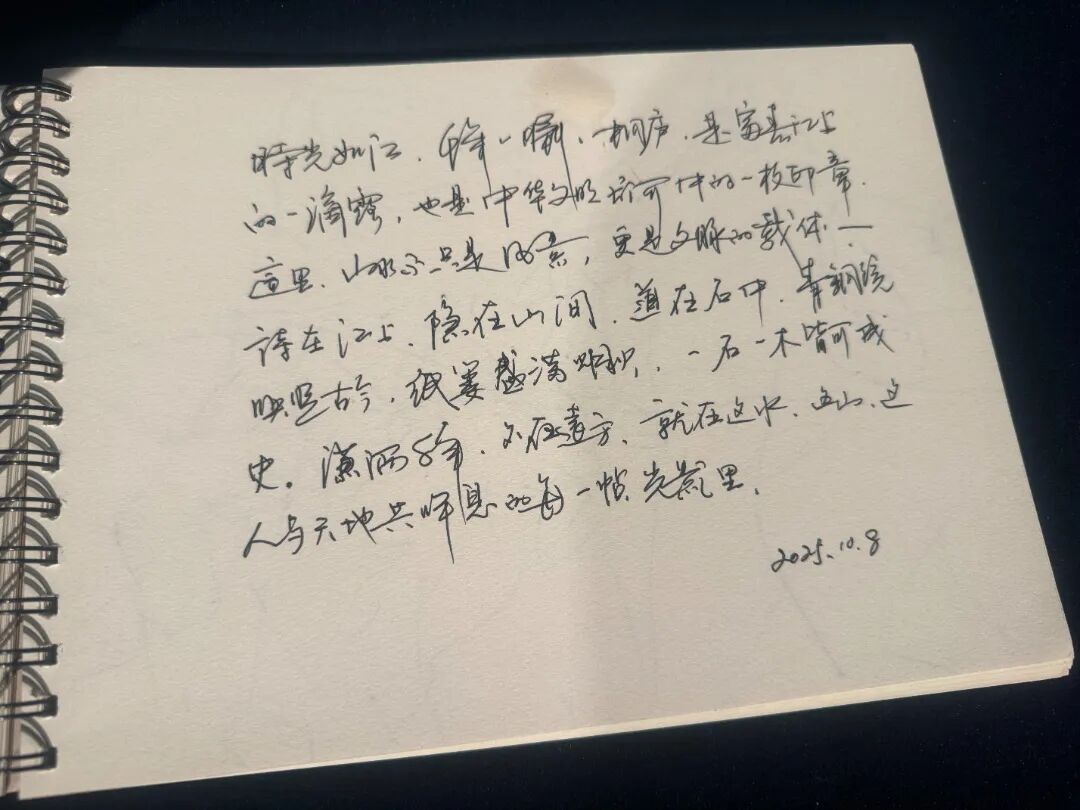 時光如江，千年一瞬，桐庐，是富春江上
的一滴露，也是中华文明长河中的一枚印章，
這里，山水不只是风景，更是文脉的载体——
诗在江上，隐在山间，道在石中，青铜镜
映照古今，纸篓盛满，一石一木皆可成
史。潇洒千年，不在遠方，就在这水，这山，这
人与天地共呼息的每一帧光景里，
2025.10.8